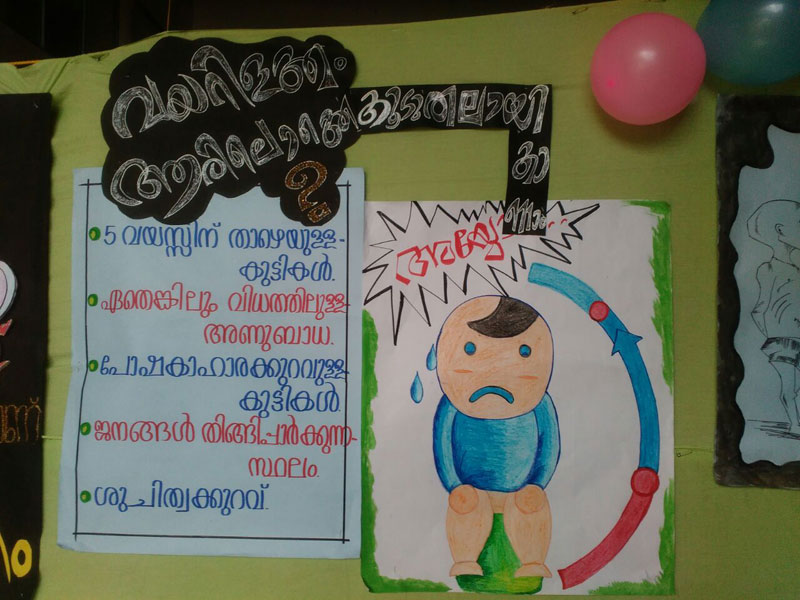 വയറിളക്കം
ആരിലൊക്കെ കൂടുതലായി
കാ
ണാം
?
5 വയസ്സിന് താഴെയുള്ള-
കുട്ടികൾ.
ഏതെങ്കിലും വിധത്തിലുള്ള-
അണുബാധ.
പോഷകാഹാരക്കുറവുള്ള-
കുട്ടികൾ
ജനങ്ങൾ തിങ്ങിപ്പാർക്കുന്ന-
സ്ഥലം.
ശുചിത്വക്കുറവ്.
അയ്യോ